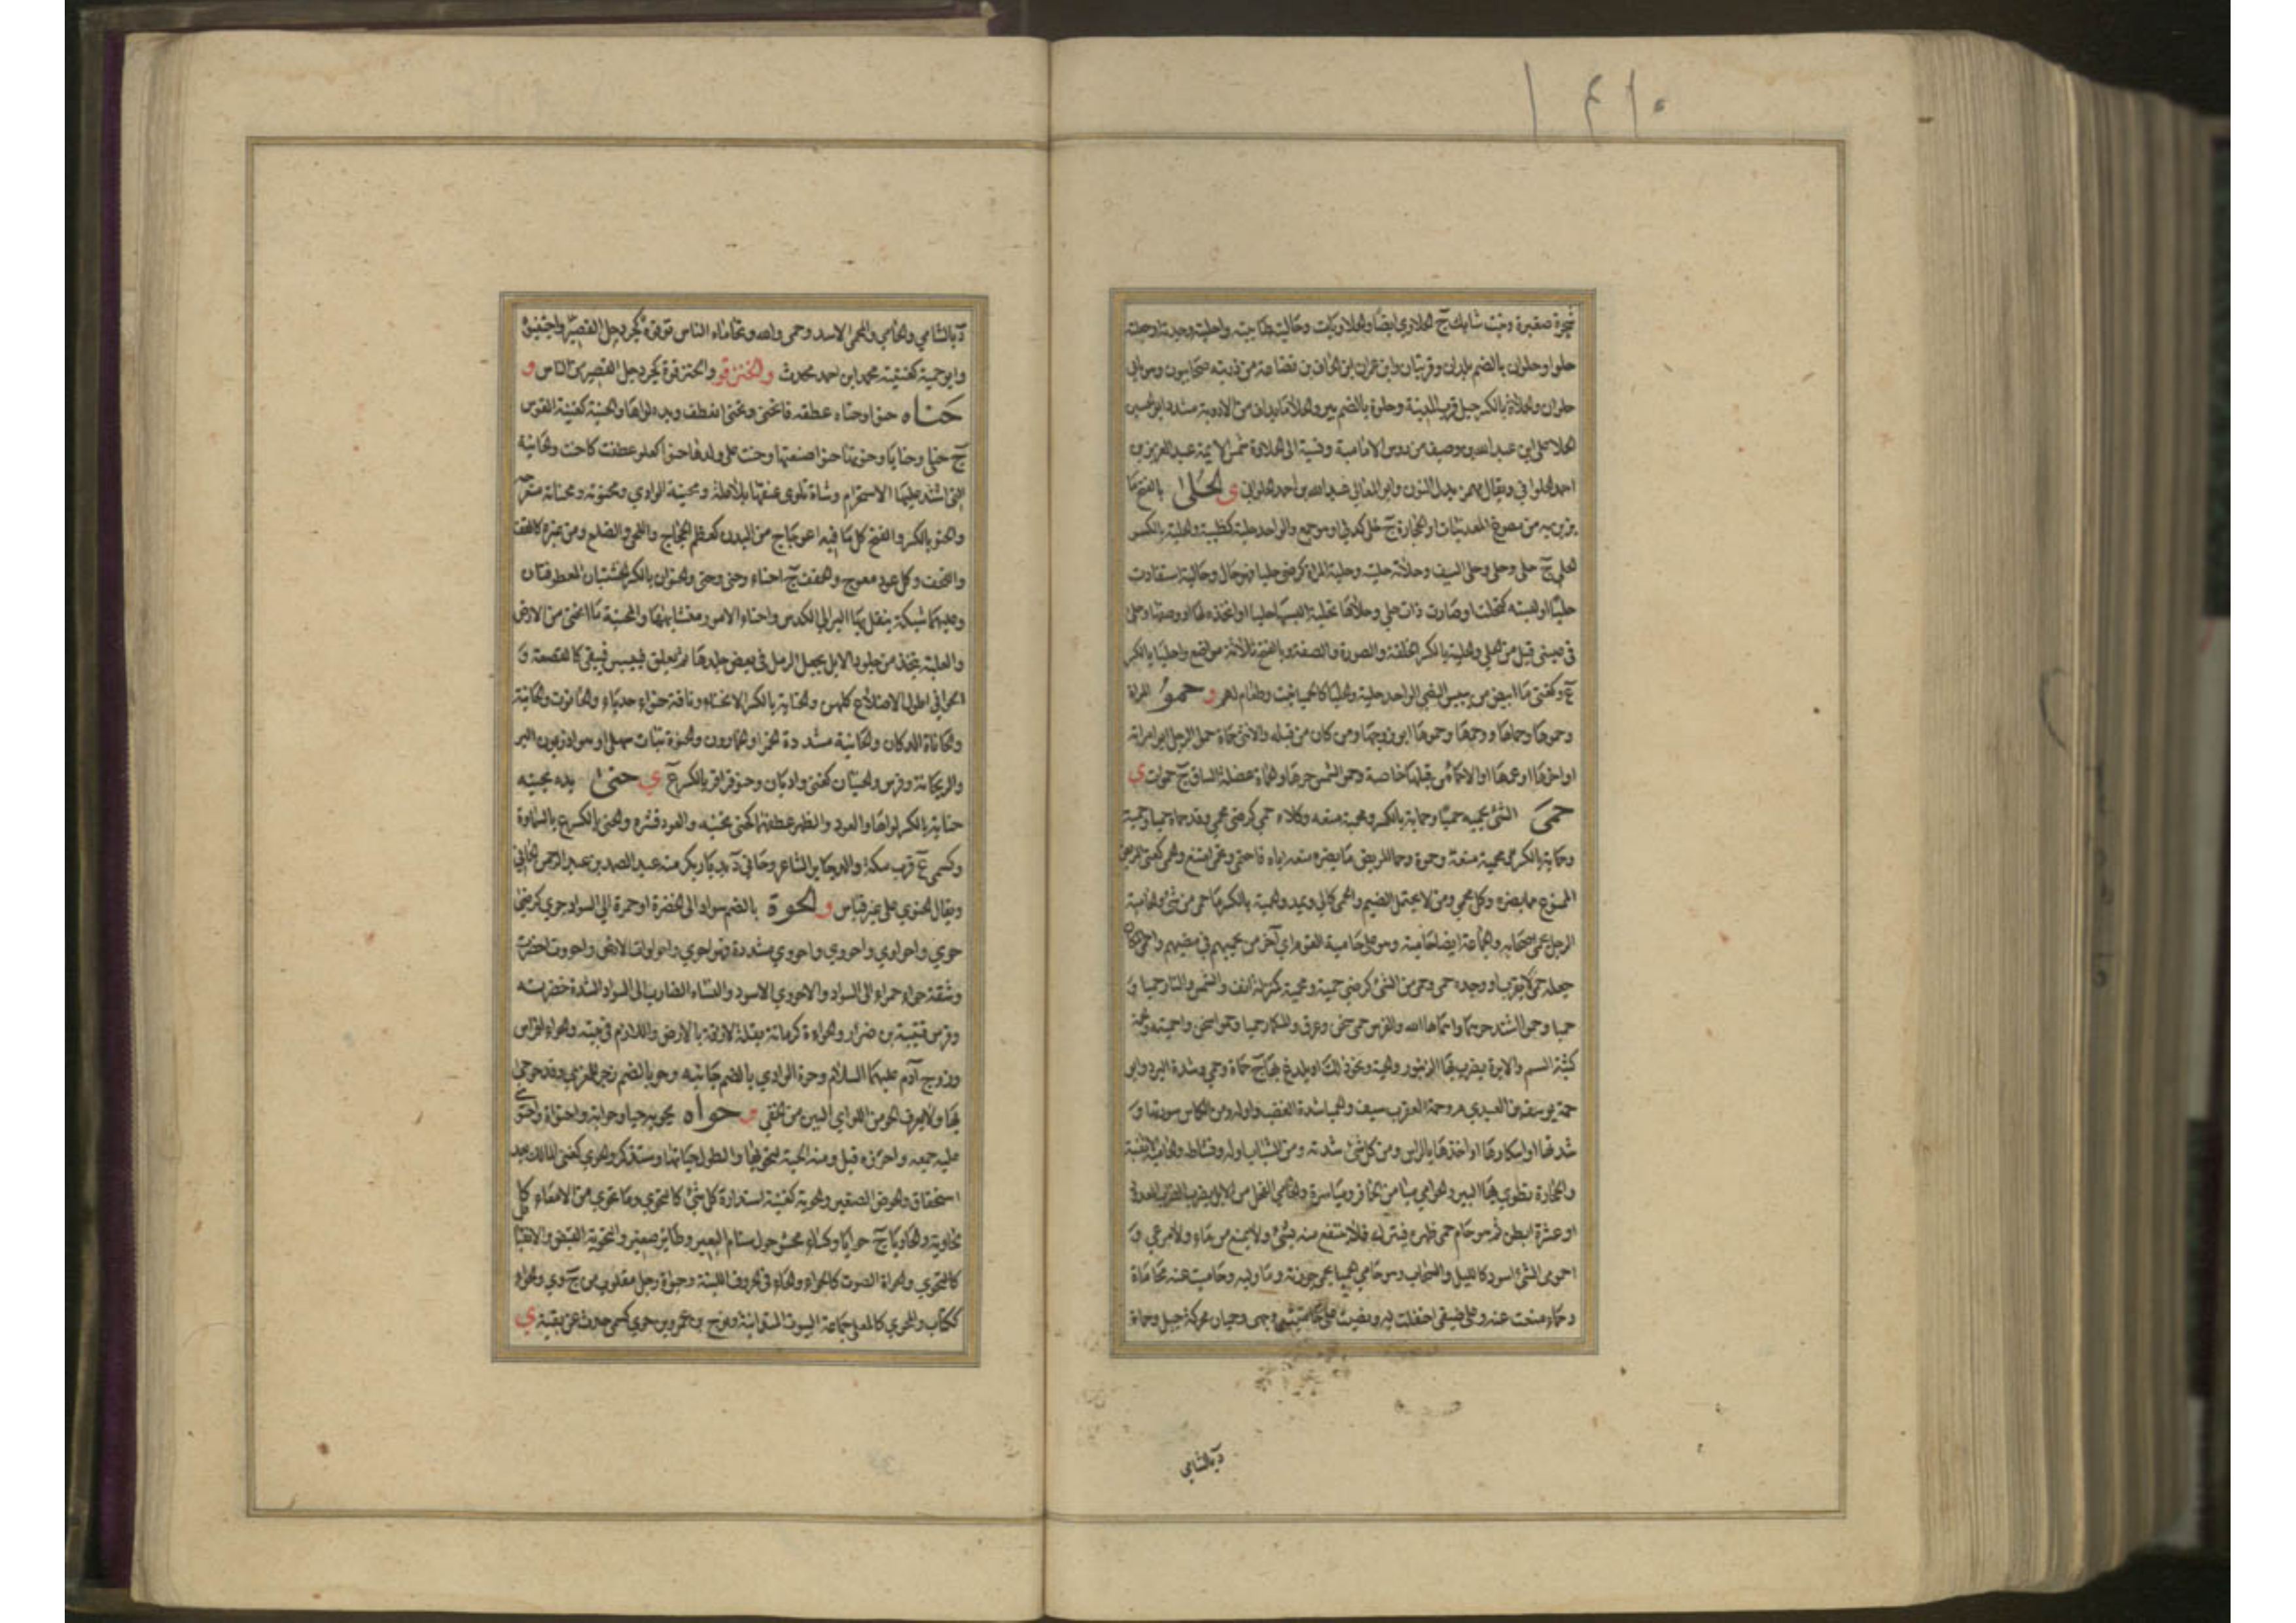 شجرة صغيرة ونبت شايك ج الحلاوى ايضا والحلاويات وحاليته طايبته واحليته وجدته او جعلته
حلوا وحلوان بالضم بلدان وقريتان وابن عمران بن الحاف بن قضاعة من ذريته صحابيون وبن الي
حلوان والحلاة بالكسر جبل قرب المدينة وحلوة بالضم بير والحلا ما يداف من الادوية مشدد ابو الحسين
الحلا علي ابن عبدالله بن وصيف من روس الامامية ونسبة الى الحلاوة شمس الايمة عبدالعزيز بن
احمد الحلواني ويقال بهمز بدل النون وابو المعالي عبدالله بن احمد الحلواني ى الحلى بالفتح ما
يزين به من مصوغ المعدنيات او الحجارة ج حلي كدلي او هو جمع والواحد حلية كظبية والحلية بالكسر
الحلي ج حلي وحلي وحلي السيف وحلاته حليته وحليت المراة كرضي حليا فهي حال وحالية استفادت
حليا او لبسته كتحلت او صارت ذات حلي وحلاها تحلية البسها حليا او اتخذه لها او وصفها وحلي
في عيني قيل من الحلي والحلية بالكسر الخلقة والصورة والصفة وبالفتح ثلاثة مواضع واحليا بالكسر
ع وكغني ما ابيض من يبيس النصي الواحد حلية والحليا كالحميا نبت وطعام لهم و حمو المراة
وحموها وحماها وحمها وحموها ابو زوجها ومن كان من قبله والانثى حماة وحمو الرجل ابو امراته
او اخوها او عمها او الاحماء من قبلها خاصة وحمو الشمس حرها والحماة عضلة الساق ج حموات ي
حمى الشئ يحميه حميا وحماية بالكسر ومحمية منعه وكلاء حمي كرضي محمي وقد حماه حميا وحمية
وحماية بالكسر محمية منعة وحموة وحما المريض ما يضره منعه اياه فاحتمى وتحمى امتنع والحمي كغني المريض
الممنوع مما يضره وكل محمي ومن لا يحتمل الضيم والحمى كالى ويمد والحمية بالكسر ما حمي من شئ والحامية
الرجل يحمي اصحابه والجماعة ايضا حامية وهو على حامية القوم اي آخر من يحميهم في مضيهم واحمى المكان
جعله حمى لا يقرب او وجده حمى وحمي من الشئ كرضي حمية ومحمية كمنزلة انف والشمس والنار حميا و
حميا وحموا اشتد حرهما واحماها الله والفرس حمى سخن وعرق والمسمار حميا وحموا سخن واحميته والحمة
كثبة السم والابرة يضرب بها الزنبور والحية ونحو ذلك او يلدغ بها ج حماة وحمى وشدة البرد وابو
حمة يوسف العبدي م وحمة العقرب سيف والحميا شدة الغضب واوله ومن الكاس سورتها و
شدتها او اسكارها او اخذها بالراس ومن كل شئ شدته ومن الشباب اوله ونشاطه والحامية الاثفية
والحجارة تطوى بها البير والحوامي ميامن الحافر ومياسره والحامي الفحل من الابل يضرب الضراب المعدود
او عشرة ابطن ثم هو حام حمى ظهره فيترك فلا ينتفع منه بشئ ولا يمنع من ماء ولا مرعى و
احمومى الشئ اسود كالليل والسحاب وهو حامي الحميا يحمي حوزته وما وليه وحاميت عنه محاماة
وحماء منعت عنه وعلى ضيفي احتفلت له ومضيت على حاميتي وجهي وحميان محركة جبل وحماة
د بالشامي
د بالشامي والحامي والمحمي الاسد وحمى والله وتحاماه الناس توقوه كجردحل القصير واجتنبوه
وابو حمية كغنية محمد ابن احمد محدث والحنزقو والحنزقوة كجردحل القصير من الناس و
حناه حنوا وحناه عطفه فانحنى وتحنى انعطف ويده لواها والحنية كغنية القوس
ج حني وحنايا وحنوتها حنوا صنعتها وحنت على ولدها حنوا كعلو عطفت كاحنت والحانية
التي اشتد عليها الاستحرام وشاة تلوى عنقها بلا علة ومحنية الوادي ومحنوته ومحناته منعرجه
والحنو بالكسر والفتح كل ما فيه اعوجاج من البدن كعظم الحجاج واللحي والضلع ومن غيره كالقف
والحقف وكل عود معوج والحقف ج احناء وحني وحني والحنوان بالكسر الخشبتان المعطوفتان
وعليهما شبكة ينقل بها البر الى الكدس واحناء الامور متشابهها والمحنية ما انحنى من الارض
والعلبة تتخذ من جلود الابل يجعل الرمل في بعض جلدها ثم يعلق فييبس فيبقى كالقصعة و
الحواني اطول الاضلاع كلهن والحناية بالكسر الانحناء وناقة حنواء حدباء والحانوت والحانية
والحاناة الدكان والحانية مشددة الخمر او الخمارون والحنوة نبات سهلي او هو اذريون البر
والريحانة وفرس والحنيان كغني واديان وحنو قراقر بالكسر ع ي حنى يده يحنيه
حناية بالكسر لواها والعود والظهر عطفهما كحنى تحنيه والعود قشره والحني بالكسر ع بالسماوة
وكسمي ع قرب مكة والد جابر الشاعر وحاني د بديار بكر منه عبد الصمد بن عبد الرحمن الحاني
ويقال الحنوي على غير قياس و الحوة بالضم سواد الى الخضرة او حمرة الى السواد حوي كرضى
حوي واحواوى واحووى واحووى مشددة فهو احوى واحواوت الارض واحووت اخضرت
وشفة حواء حمراء الى السواد والاحوى الاسود والنبات الضارب الى السواد لشدة خضرته
وفرس قتيبة بن ضرار والحواءة كرمانة بقلة لازقة بالارض واللازم في بيته والحواء افراس
وزوج آدم عليهما السلام وحوة الوادي بالضم جانبه وحو بالضم زجر للمعزى وقد حوحى
بها ولا يعرف الحو من اللو اي البين من الخفي و حواه يحويه حيا وحواية واحتواه واحتوى
عليه جمعه واحرزه قيل ومنه الحية لتحويها او لطول حياتها وستذكر والحوي كغني المالك بعد
استحقاق والحوض الصغير والحوية كغنية استدارة كل شئ كالتحوي وما تحوى من الامعاء كال
حاوية والحاويا ج حوايا وكساء محشو حول سنام البعير وطائر صغير والتحوية القبض والانقباض
كالتحوي والحواة الصوت كالحواء والحاء في حروف اللينة وحيوة رجل مقلوب من ح وي والحواء
ككتاب والمحوى كالمعلى جماعة البيوت المتدانية ونوح بن عمرو بن حوي كسمي حدث عن بقية ي